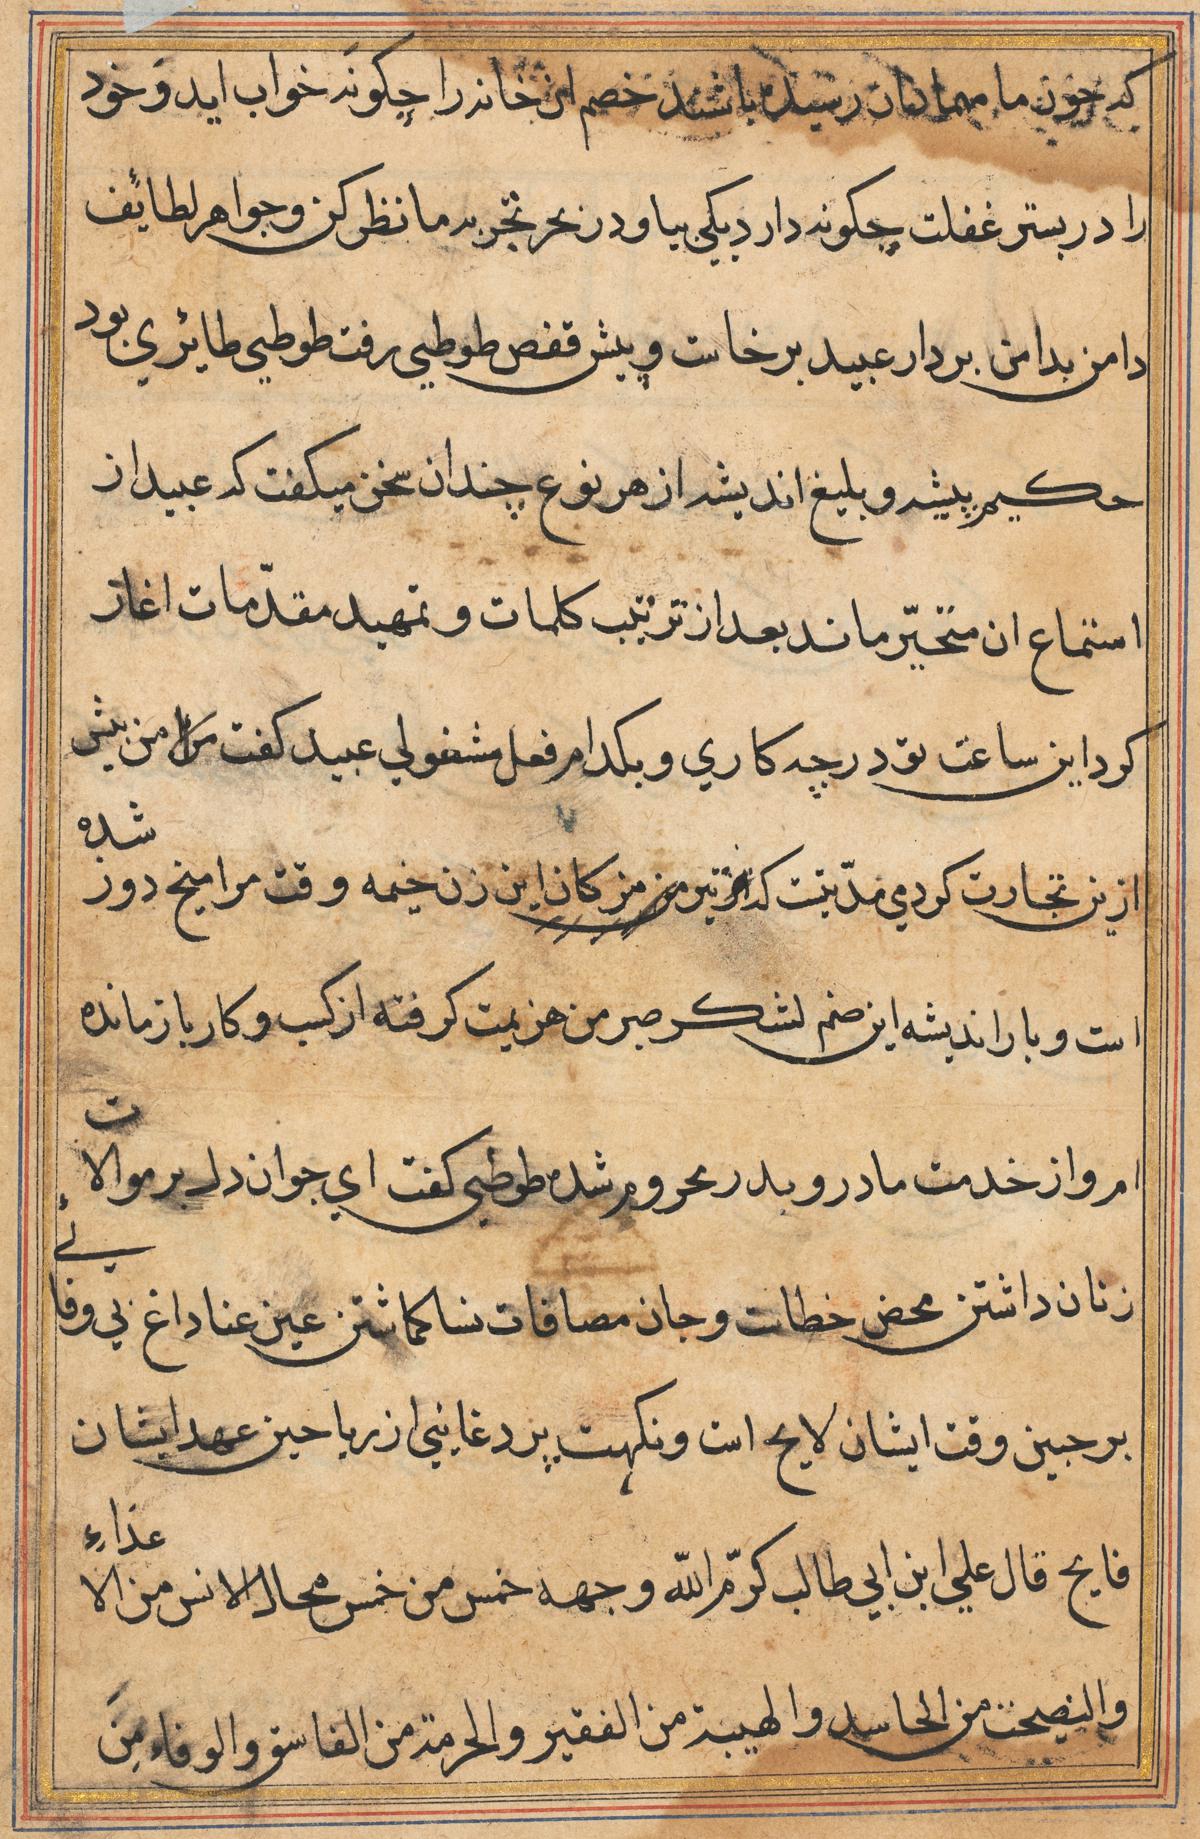 که چون ما مهمانان رسیده باشند خصم این خانه را چکونه خواب اید و خود
را در بستر غفلت چکونه دارد یکی بیا و در بحر تجربه ما نظر کن و جواهر لطائف
دامن بدامن بردار عبید برخاست و پیش قفص طوطیی رفت طوطیی طائری بود
حکیم پیشه و بلیغ اندیشه از هر نوع چندان سخن میکفت که عبید از
استماع ان متحیّر ماند بعد از ترتیب کلمات و تمهید مقدّمات اغاز
کرد این ساعت تو در چه کاری و بکدام فعل مشغولی عبید کفت من پیش
ازین تجارت کردمی مدّتیست که از تیر مژکان این زن خیمه وقت مرا میخ دوز
شده
است و با راندیشه این صنم لشکر صبر من هزیمت کرفته از کسب و کار باز مانده
ام و از خدمت مادر و پدر محروم شده طوطیی کفت ای جوان دل بر موالا
ت
زنان داشتن محض خطاست و جان مصافات نسا کماشتن عین عنا داغ بی وفا
ئی
بر جبین وقت ایشان لایح است و نکهت پر دغاییی از ریاحین عهد ایشان
فایح قال علی ابن ابی طالب کرّم الله وجهه خمس من خمس محال الانس من الا
عداء
والنصیحة من الحاسد والهیبة من الفقیر والحرمة من الفاسق والوفاء من